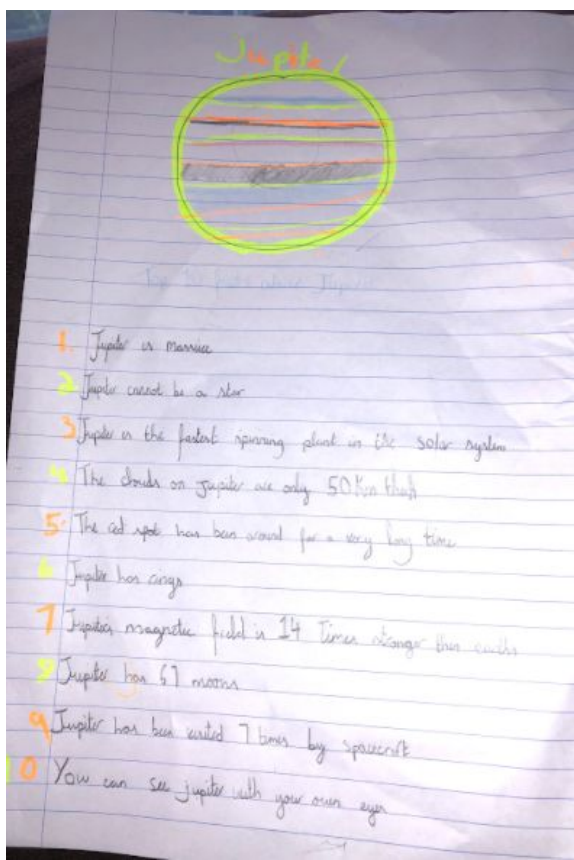 Jupiter
Top 10 facts about Jupiter
1. Jupiter is massive
2 Jupiter cannot be a star
3 Jupiter is the fastest spinning plant in the solar system
4 The clouds on Jupiter are only 50 Km thick
5. The red spot has been around for a very long time
6 Jupiter has rings
7 Jupiter's magnetic field is 14 Times stronger then earths
8 Jupiter has 67 moons
9 Jupiter has been visited 7 times by spacecraft
10 You can see jupiter with your own eyes